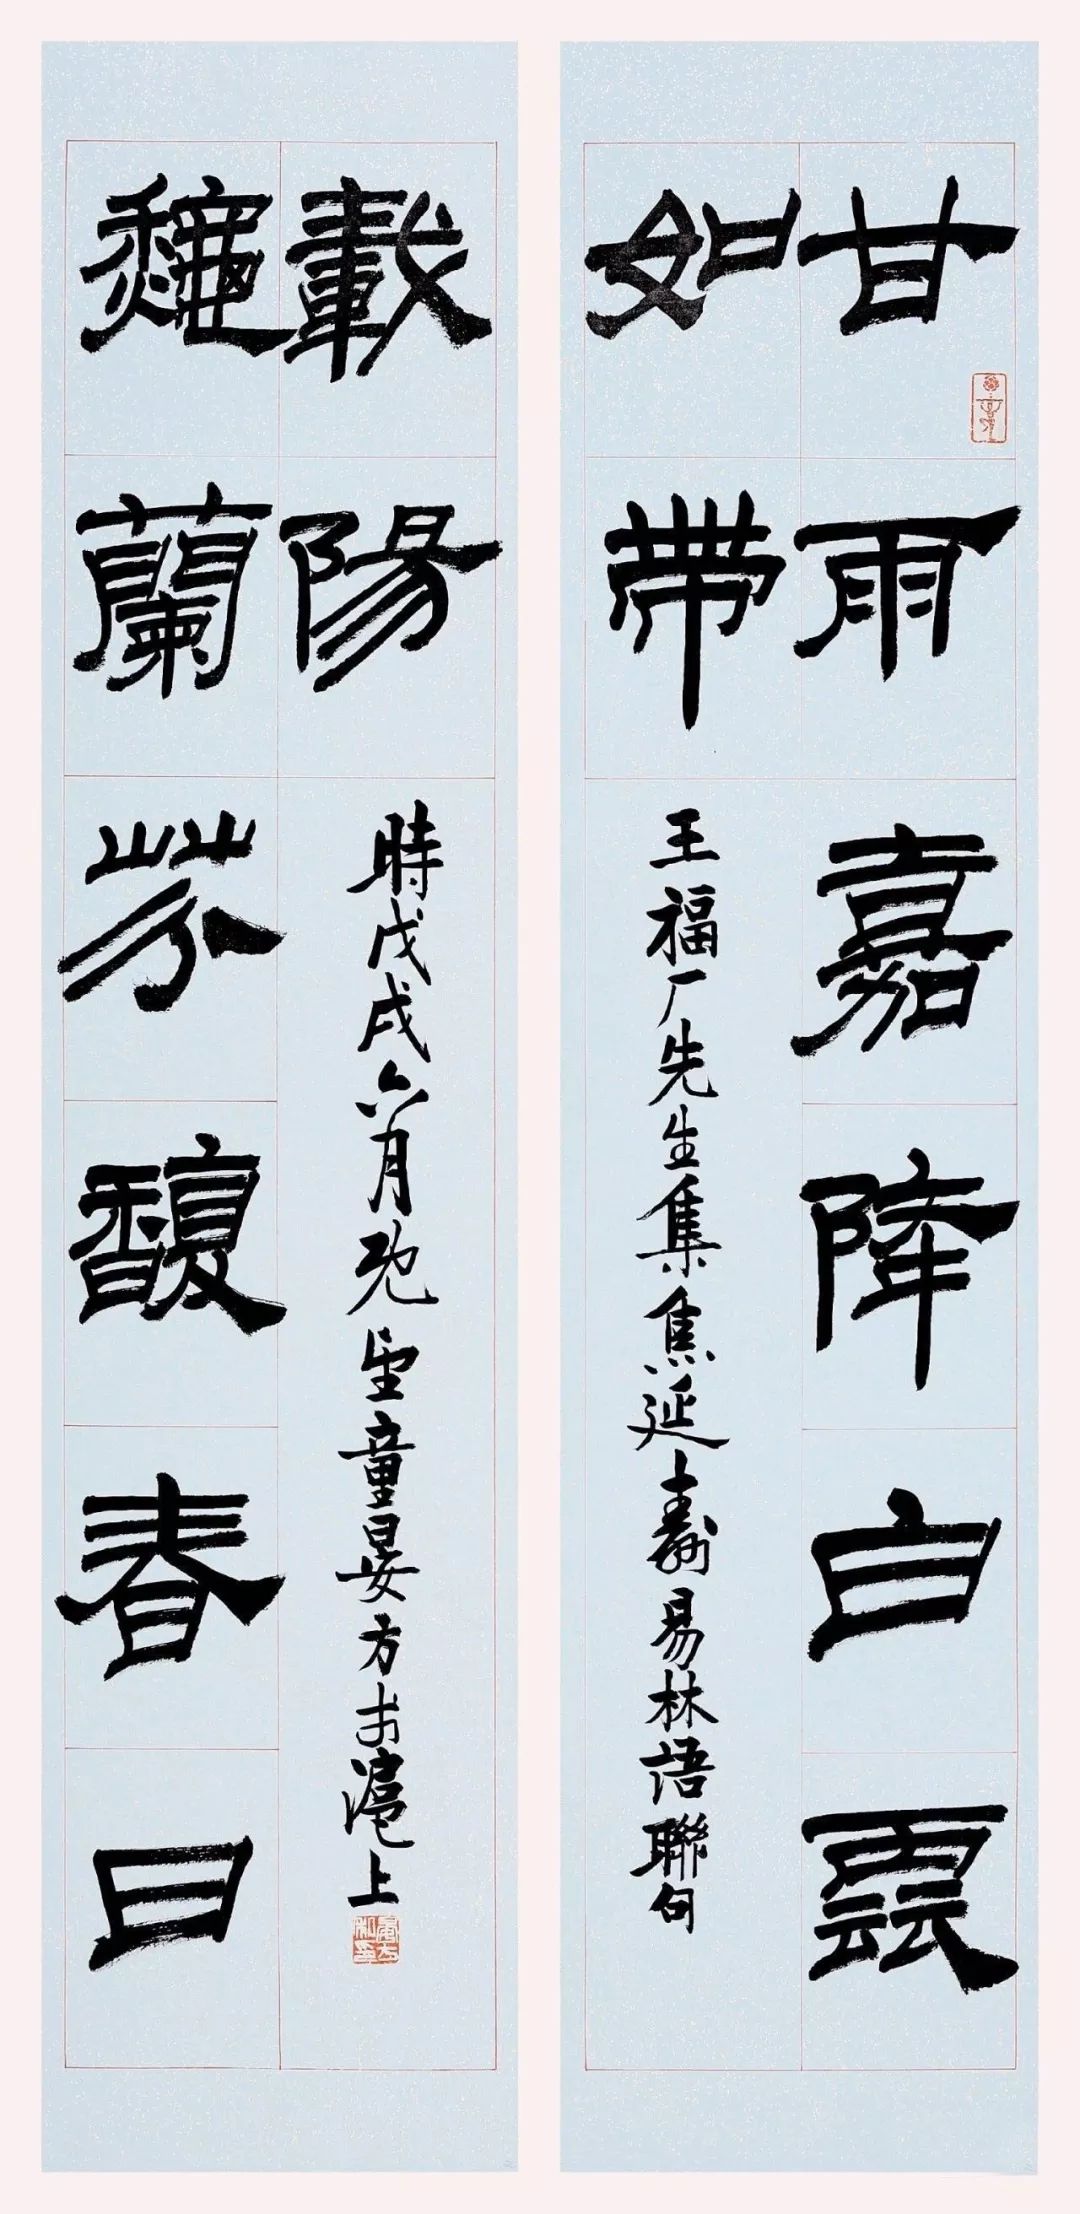 甘雨嘉降白雲
如帶
王福厂先生集焦延壽易林語聯句
龝蘭芬馥春日
載陽
時戊戌六月既望童晏方書滬上
晏方私印